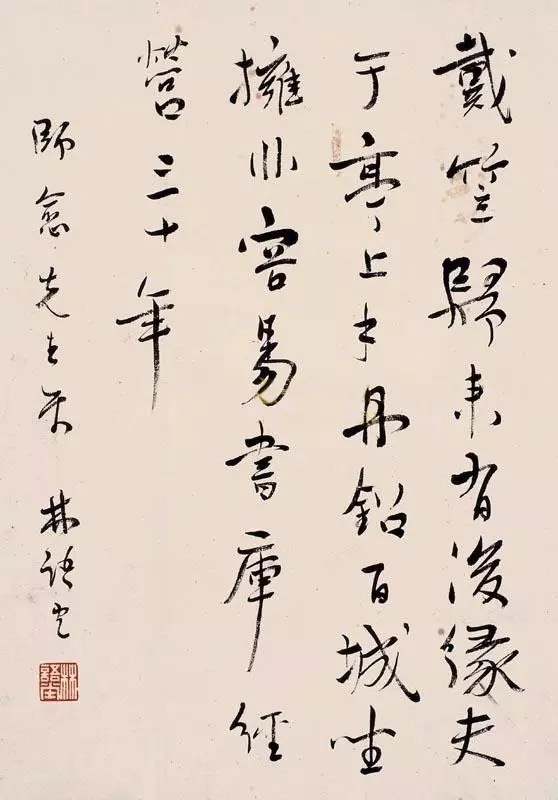 戴笠歸来有後緣夫
于亭上手丹鉛百城坐
擁非容易書庫經
營三十年
師愈先生 林語堂
林語堂